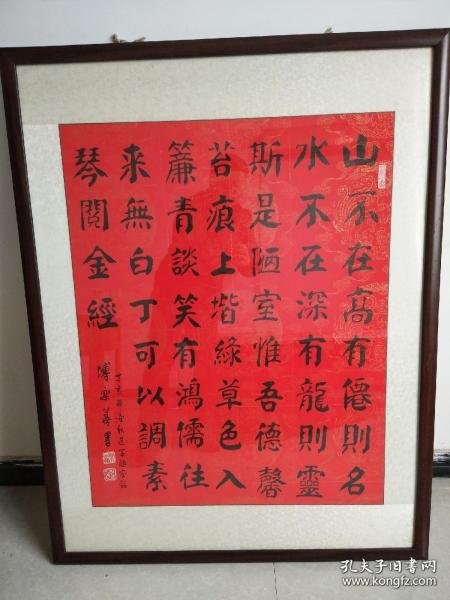 山不在高有僊則名
水不在深有龍則靈
斯是陋室惟吾德馨
苔痕上堦綠草色入
簾青談笑有鴻儒往
来無白丁可以調素
琴閱金經
丁亥
孔夫子旧书网
www.kongfz.com